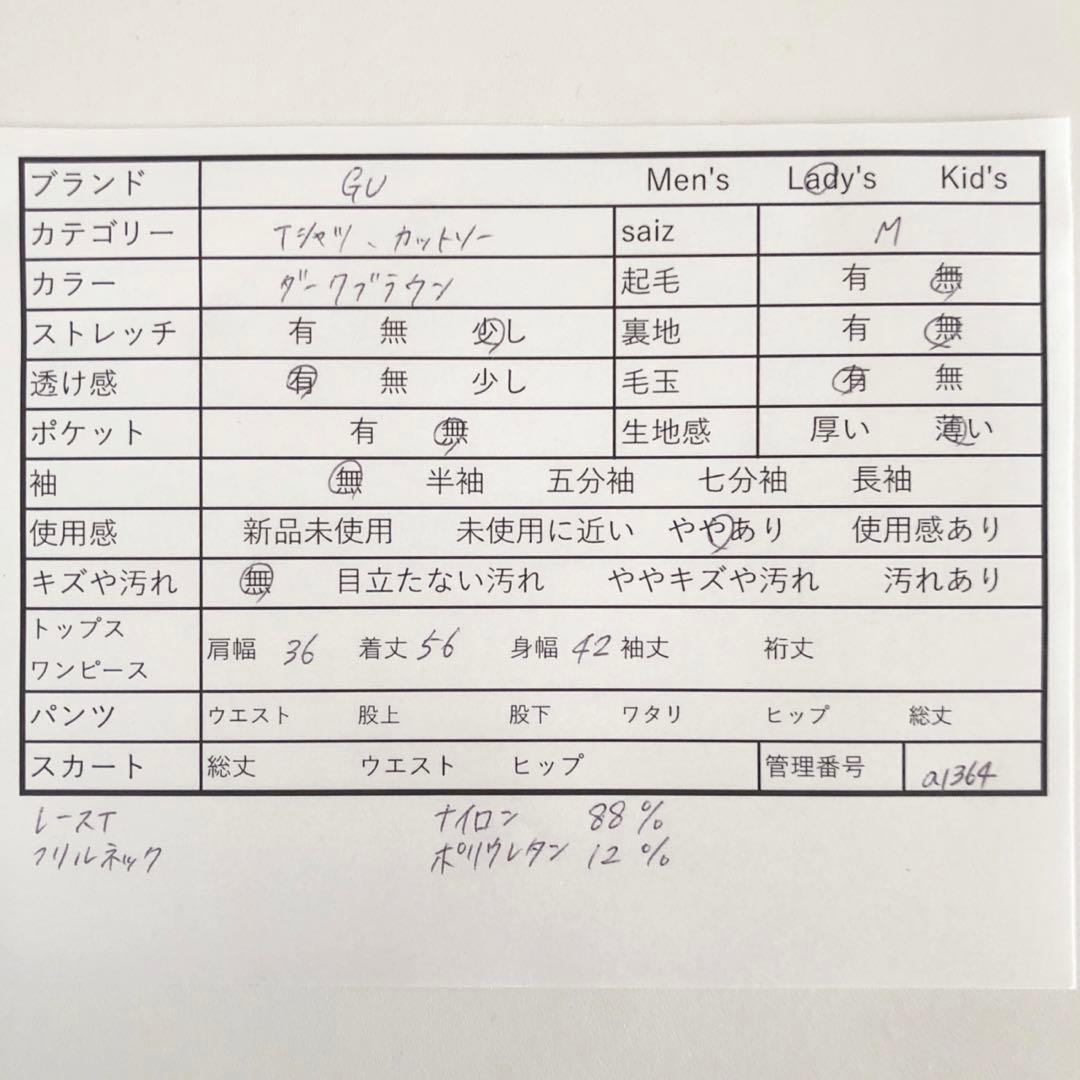 ブランド GU Men's Lady's Kid's
カテゴリー Tシャツ、カットソー saiz M
カラー ダークブラウン 起毛 有 無
ストレッチ 有 無 少し 裏地 有 無
透け感 有 無 少し 毛玉 有 無
ポケット 有 無 生地感 厚い 薄い
袖 無 半袖 五分袖 七分袖 長袖
使用感 新品未使用 未使用に近い ややあり 使用感あり
キズや汚れ 無 目立たない汚れ ややキズや汚れ 汚れあり
トップス
ワンピース 肩幅 36 着丈 56 身幅 42 袖丈 裄丈
パンツ ウエスト 股上 股下 ワタリ ヒップ 総丈
スカート 総丈 ウエスト ヒップ 管理番号 a1364
レースT ナイロン 88%
フリルネック ポリウレタン 12%